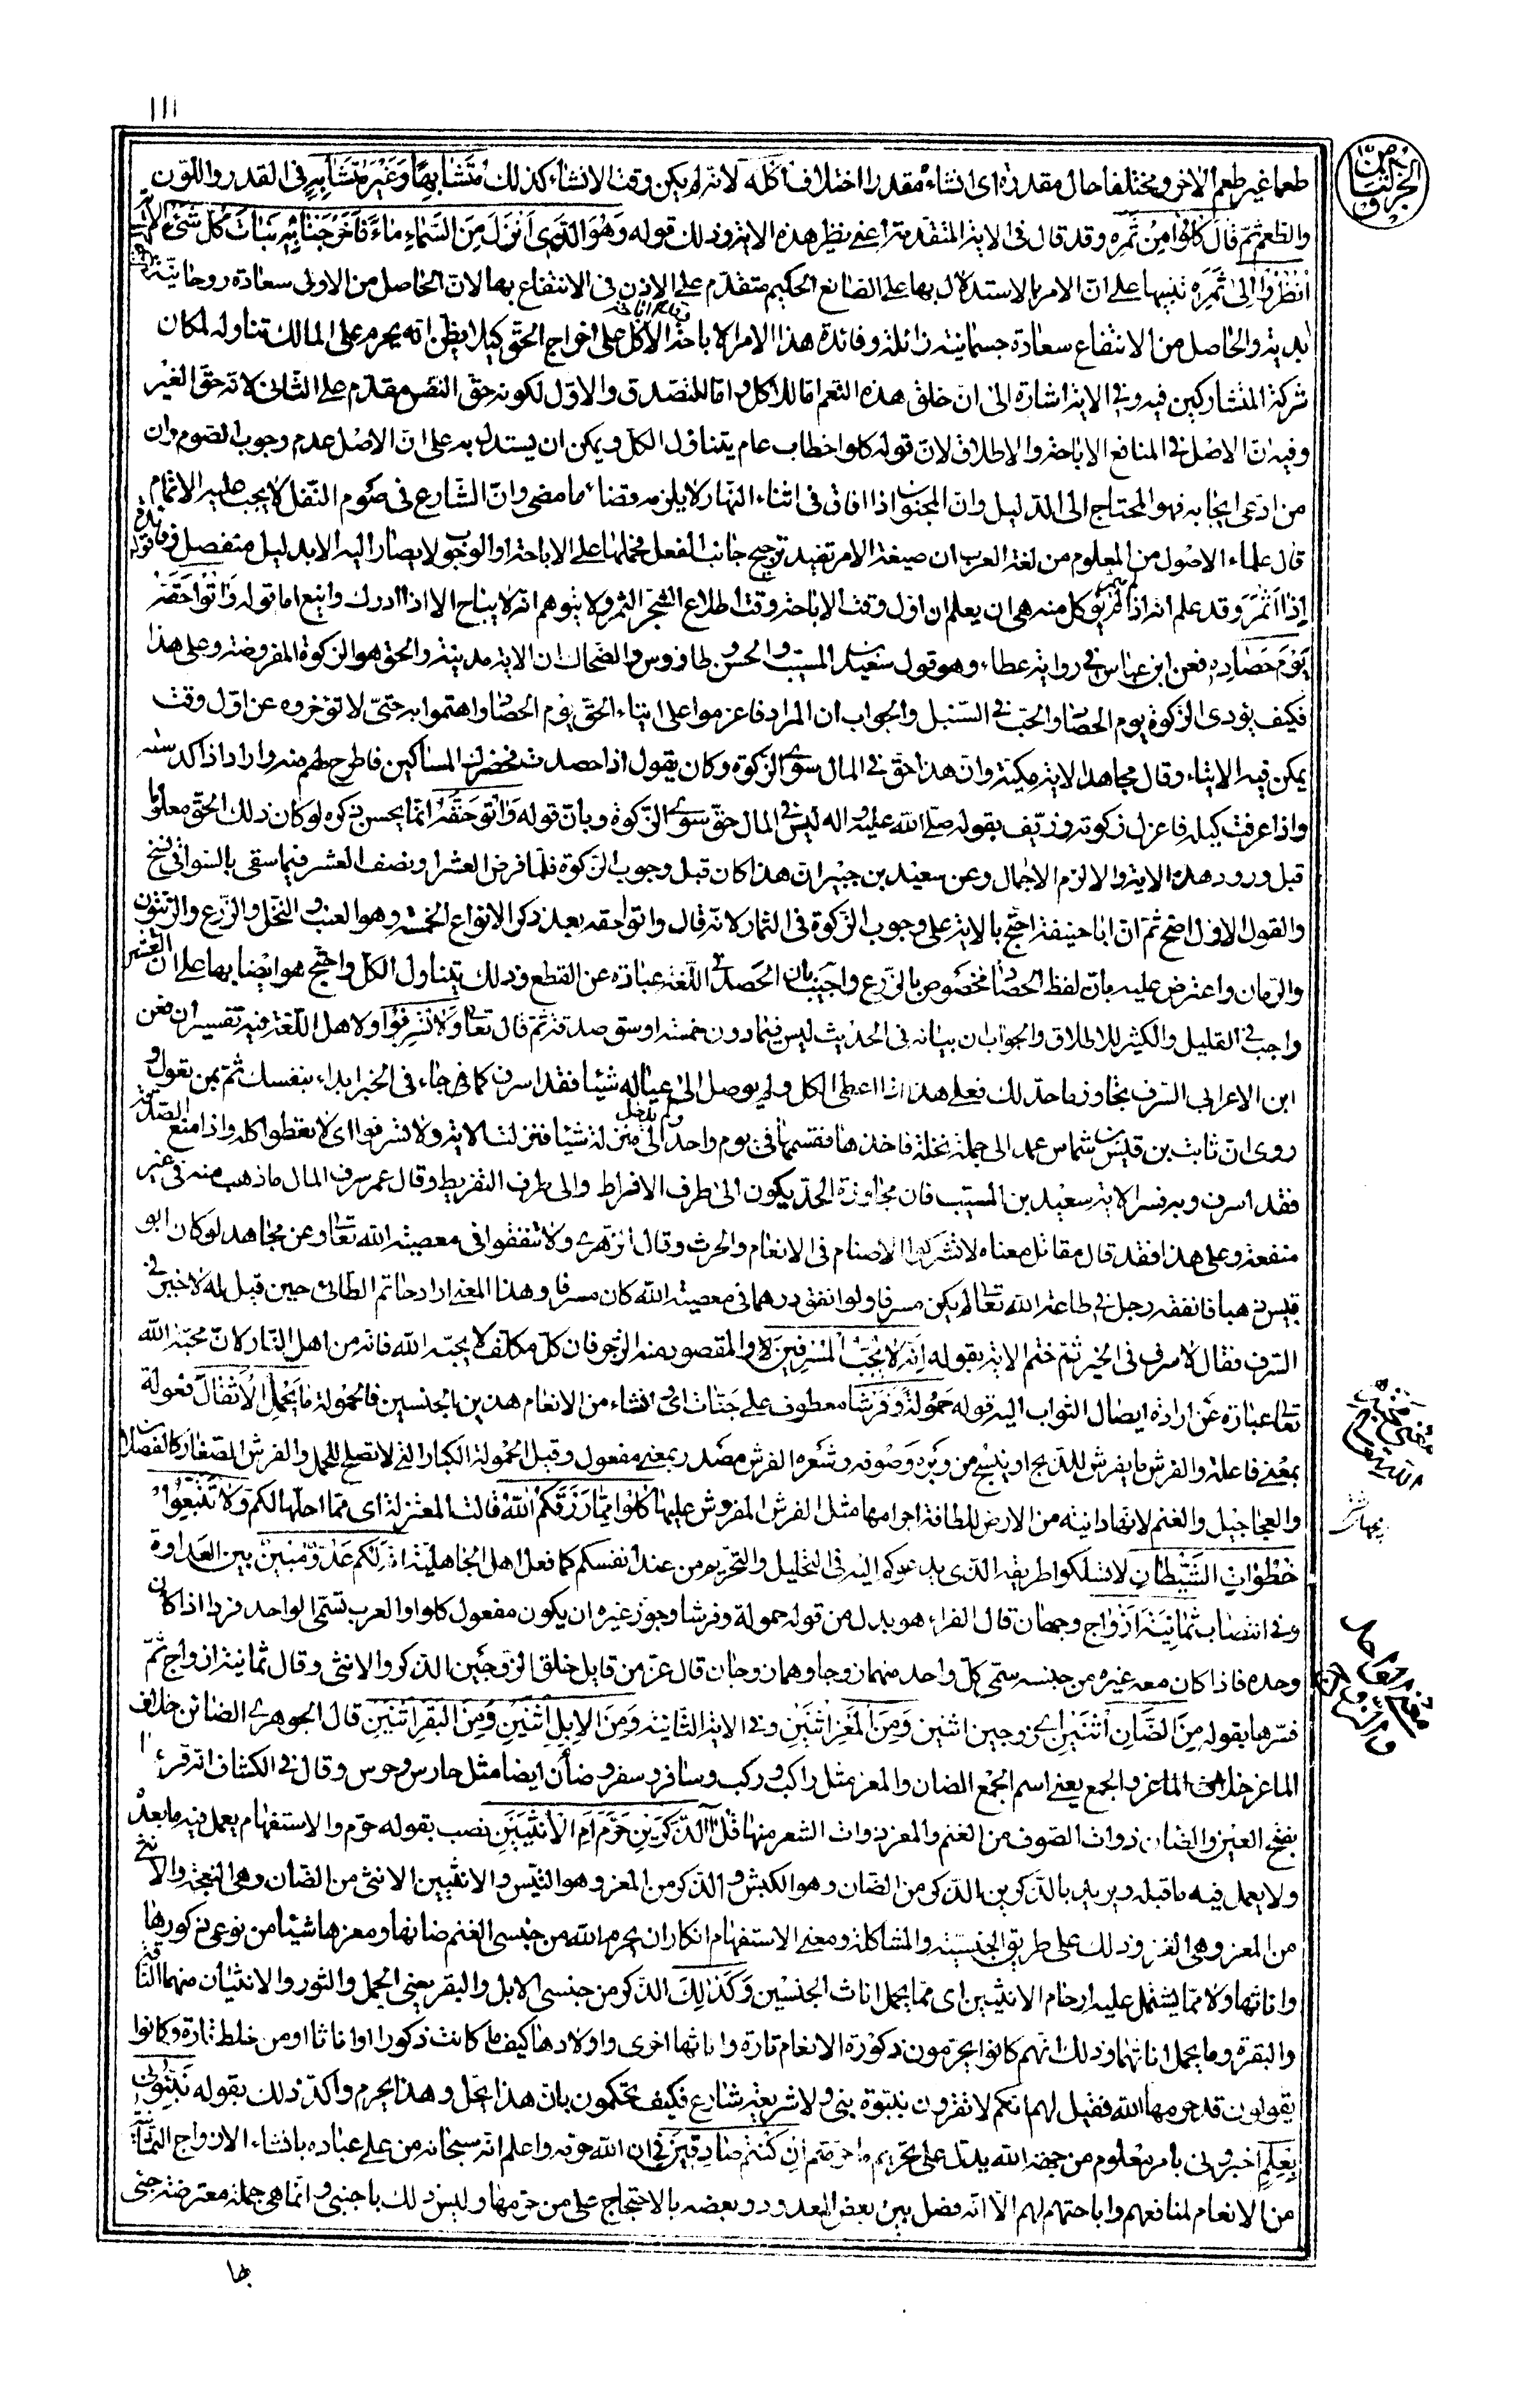 ١١١
الجزء الثامن
طعما غير طعم الاخر ومختلفا حال مقدرة اى انشاء مقدرا اختلاف اكله لانه لم يكن وقت الانشاء كذلك مُتَشَابِهًا وَغَيْرَ مُتَشَابِهٍ فى القدر واللون
والطعم ثم قال كُلُوا مِنْ ثَمَرِهِ وقد قال فى الاية المتقدمة اعنى نظير هذه الاية وذلك قوله وَهُوَ الَّذِى اَنْزَلَ مِنَ السَّمَاءِ مَاءً فَاَخْرَجْنَا بِهِ نَبَاتَ كُلِّ شَىْءٍ الاية
اُنْظُرُوا اِلَى ثَمَرِهِ تنبيها على ان الامر بالاستدلال بها على الصانع الحكيم متقدم على الاذن فى الانتفاع بها لان الحاصل من الاولى سعادة روحانية
ابدية والحاصل من الانتفاع سعادة جسمانية زائلة وفائدة هذا الامر الاباحة الاكل على اخراج الحق كيلا يظن انه يحرم على المالك تناوله لمكان
شركة المتشاركين فيه وفى الاية اشارة الى ان خلق هذه النعم اما للاكل واما للتصدق والاول لكونه حق النفس مقدم على الثانى لانه حق الغير
وفيه ان الاصل فى المنافع الاباحة والاطلاق لان قوله كلوا خطاب عام يتناول الكل ويمكن ان يستدل به على ان الاصل عدم وجوب الصوم وان
من ادعى ايجابه فهو المحتاج الى الدليل وان المجنون اذا افاق فى اثناء النهار لا يلزمه قضاء ما مضى وان الشارع فى صوم النفل لا يجب عليه الاتمام
قال علماء الاصول من المعلوم من لغة العرب ان صيغة الامر تفيد ترجيح جانب الفعل فحملها على الاباحة او الوجوب لا يصار اليه الا بدليل منفصل وفائدة قوله
اِذَا اَثْمَرَ وقد علم انه اذا لم يثمر لم يؤكل منه هى ان يعلم ان اول وقت الاباحة وقت اطلاع الشجر الثمر ولا يتوهم انه لا يباح الا اذا ادرك واينع اما قوله وَاٰتُوا حَقَّهُ
يَوْمَ حَصَادِهِ فعن ابن عباس فى رواية عطاء وهو قول سعيد بن المسيب والحسن وطاوس والضحاك ان الاية مدنية والحق هو الزكوة المفروضة وعلى هذا
فكيف يؤدى الزكوة يوم الحصاد والحب فى السنبل والجواب ان المراد فاعزموا على ايتاء الحق يوم الحصاد واهتموا به حتى لا تؤخروه عن اول وقت
يمكن فيه الايتاء وقال مجاهد الاية مكية وان هذا حق فى المال سوى الزكوة وكان يقول اذا حصدت فحضرك المساكين فاطرح لهم منه واراد اذا كدسته
واذا عرفت كيله فاعزل زكوته وزيف بقوله صلى الله عليه واله ليس فى المال حق سوى الزكوة وبان قوله وَاٰتُوا حَقَّهُ انما يحسن ذكره لو كان ذلك الحق معلوما
قبل ورود هذه الاية والا لزم الاجمال وعن سعيد بن جبير ان هذا كان قبل وجوب الزكوة فلما فرض العشر او نصف العشر فيما سقى بالسوانى نسخ
والقول الاول اصح ثم ان ابا حنيفة احتج بالاية على وجوب الزكوة فى الثمار لانه قال واتوا حقه بعد ذكر الانواع الخمسة وهو العنب والنخل والزرع والزيتون
والرمان واعترض عليه بان لفظ الحصاد مخصوص بالزرع واجيب بان الحصد فى اللغة عبارة عن القطع وذلك يتناول الكل واحتج هو ايضا بها على ان العشر
واجب فى القليل والكثير للاطلاق والجواب ان بيانه فى الحديث ليس فيما دون خمسة اوسق صدقة ثم قال تعالى وَلَا تُسْرِفُوا ولاهل اللغة فيه تفسيران فعن
ابن الاعرابى السرف تجاوز ما حد لك فعلى هذا اذا اعطى الكل ولم يوصل الى عياله شيئا فقد اسرف كما جاء فى الخبر ابدا بنفسك ثم بمن تعول و
روى ان ثابت بن قيس بن شماس عمد الى جملة نخلة فاخذها فقسمها فى يوم واحد ولم يدخل الى منزله شيئا فنزلت الاية ولا تسرفوا اى لا تعطوا كله واذا منع الصدقة
فقد اسرف وبه فسر الاية سعيد بن المسيب فان مجاوزة الحد يكون الى طرف الافراط والى طرف التفريط وقال عمر سرف المال ما ذهب منه فى غير
منفعة وعلى هذا فقد قال مقاتل معناه لا تشركوا الاصنام فى الانعام والحرث وقال الزهرى ولا تنفقوا فى معصية الله تعالى وعن مجاهد لو كان ابو
قبيس ذهبا فانفقه رجل فى طاعة الله تعالى لم يكن مسرفا ولو انفق درهما فى معصية الله كان مسرفا وهذا المعنى اراد حاتم الطائى حين قيل له لا خير فى
السرف فقال لا سرف فى الخير ثم ختم الاية بقوله اِنَّهُ لَا يُحِبُّ الْمُسْرِفِينَ والمقصود منه الزجر فان كل مكلف لا يحبه الله فانه من اهل النار لان محبة الله
تعالى عبارة عن ارادة ايصال الثواب اليه قوله حَمُولَةً وَفَرْشًا معطوف على جنات اى وانشاء من الانعام هذين الجنسين فالحمولة ما يَحْمِلُ الْاَثْقَالَ فعولة
بمعنى فاعلة والفرش ما يفرش للذبح او ينسج من وبره وصوفه وشعره الفرش مصدر بمعنى مفعول وقيل الحمولة الكبار التى لا تصلح للحمل والفرش الصغار كالفصلان
والعجاجيل والغنم لانها دانية من الارض للطافة اجرامها مثل الفرش المفروش عليها كُلُوا مِمَّا رَزَقَكُمُ اللهُ قالت المعتزلة اى مما احلها لكم وَلَا تَتَّبِعُوا
خُطُوَاتِ الشَّيْطَانِ لا تسلكوا طريقه الذى يدعوكم اليه فى التحليل والتحريم من عند انفسكم كما فعل اهل الجاهلية اِنَّهُ لَكُمْ عَدُوٌّ مُبِينٌ بين العداوة
وفى انتصاب ثَمَانِيَةَ اَزْوَاجٍ وجهان قال الفراء هو بدل من قوله حمولة وفرشا وجوز غيره ان يكون مفعول كلوا والعرب تسمى الواحد فردا اذا كان
وحده فاذا كان معه غيره من جنسه سمى كل واحد منهما زوجا وهما زوجان قال عز من قايل خلق الزوجين الذكر والانثى وقال ثمانية ازواج ثم
فسرها بقوله مِنَ الضَّأْنِ اثْنَيْنِ اى زوجين اثنين وَمِنَ الْمَعْزِ اثْنَيْنِ وفى الاية الثانية وَمِنَ الْاِبِلِ اثْنَيْنِ وَمِنَ الْبَقَرِ اثْنَيْنِ قال الجوهرى الضائن خلاف
الماعز خلاف الماعز والجمع يعنى اسم الجمع الضان والمعز مثل راكب وركب وسافر وسفر وضأن ايضا مثل حارس وحرس وقال فى الكشاف انه قرئ
بفتح العين والضان ذوات الصوف من الغنم والمعز ذوات الشعر منها قُلْ اٰلذَّكَرَيْنِ حَرَّمَ اَمِ الْاُنْثَيَيْنِ نصب بقوله حرم والاستفهام يعمل فيه ما بعده
ولا يعمل فيه ما قبله ويريد بالذكرين الذكر من الضان وهو الكبش والذكر من المعز وهو التيس والانثيين الانثى من الضان وهى النعجة والانثى
من المعز وهى العنز وذلك على طريق الجنسية والمشاكلة ومعنى الاستفهام انكار ان يحرم الله من جنسى الغنم ضانها ومعزها شيئا من نوعى ذكورها
واناثها ولا مما يشتمل عليه ارحام الانثيين اى مما يحمل اناث الجنسين وَكَذٰلِكَ الذكر من جنسى الابل والبقر يعنى الجمل والثور والانثيان منهما الناقة
والبقرة وما يحمل اناثهما وذلك انهم كانوا يحرمون ذكورة الانعام تارة واناثها اخرى واولادها كيف ما كانت ذكورا او اناثا او من خلط تارة وكانوا
يقولون قد حرمها الله فقيل لهم انكم لا تقرون بنبوة نبى ولا شريعة شارع فكيف تحكمون بان هذا يحل وهذا يحرم واكد ذلك بقوله نَبِّئُونِى
بِعِلْمٍ اخبرونى بامر معلوم من جهة الله يدل على تحريم ما حرمتم اِنْ كُنْتُمْ صَادِقِينَ فى ان الله حرمه واعلم انه سبحانه من على عباده بانشاء الازواج الثمانية
من الانعام لمنافعهم واباحتهم لهم الا انه فصل بين بعض المعدود وبعضه بالاحتجاج على من حرمها وليس ذلك باجنبى وانما هى جملة معترضة جئ
بها